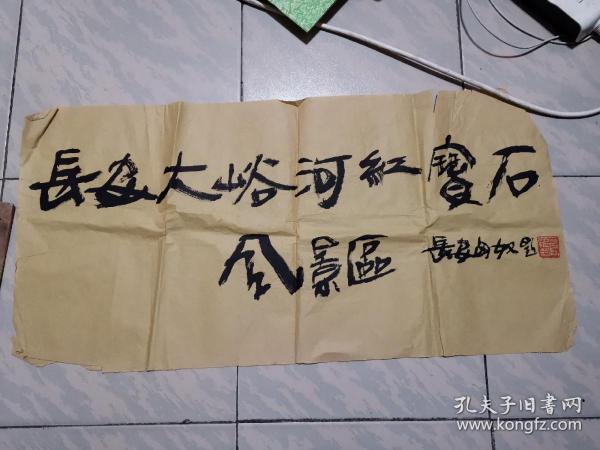 長安大峪河紅寶石
風景區
長安
題
孔夫子旧书网
www.kongfz.com